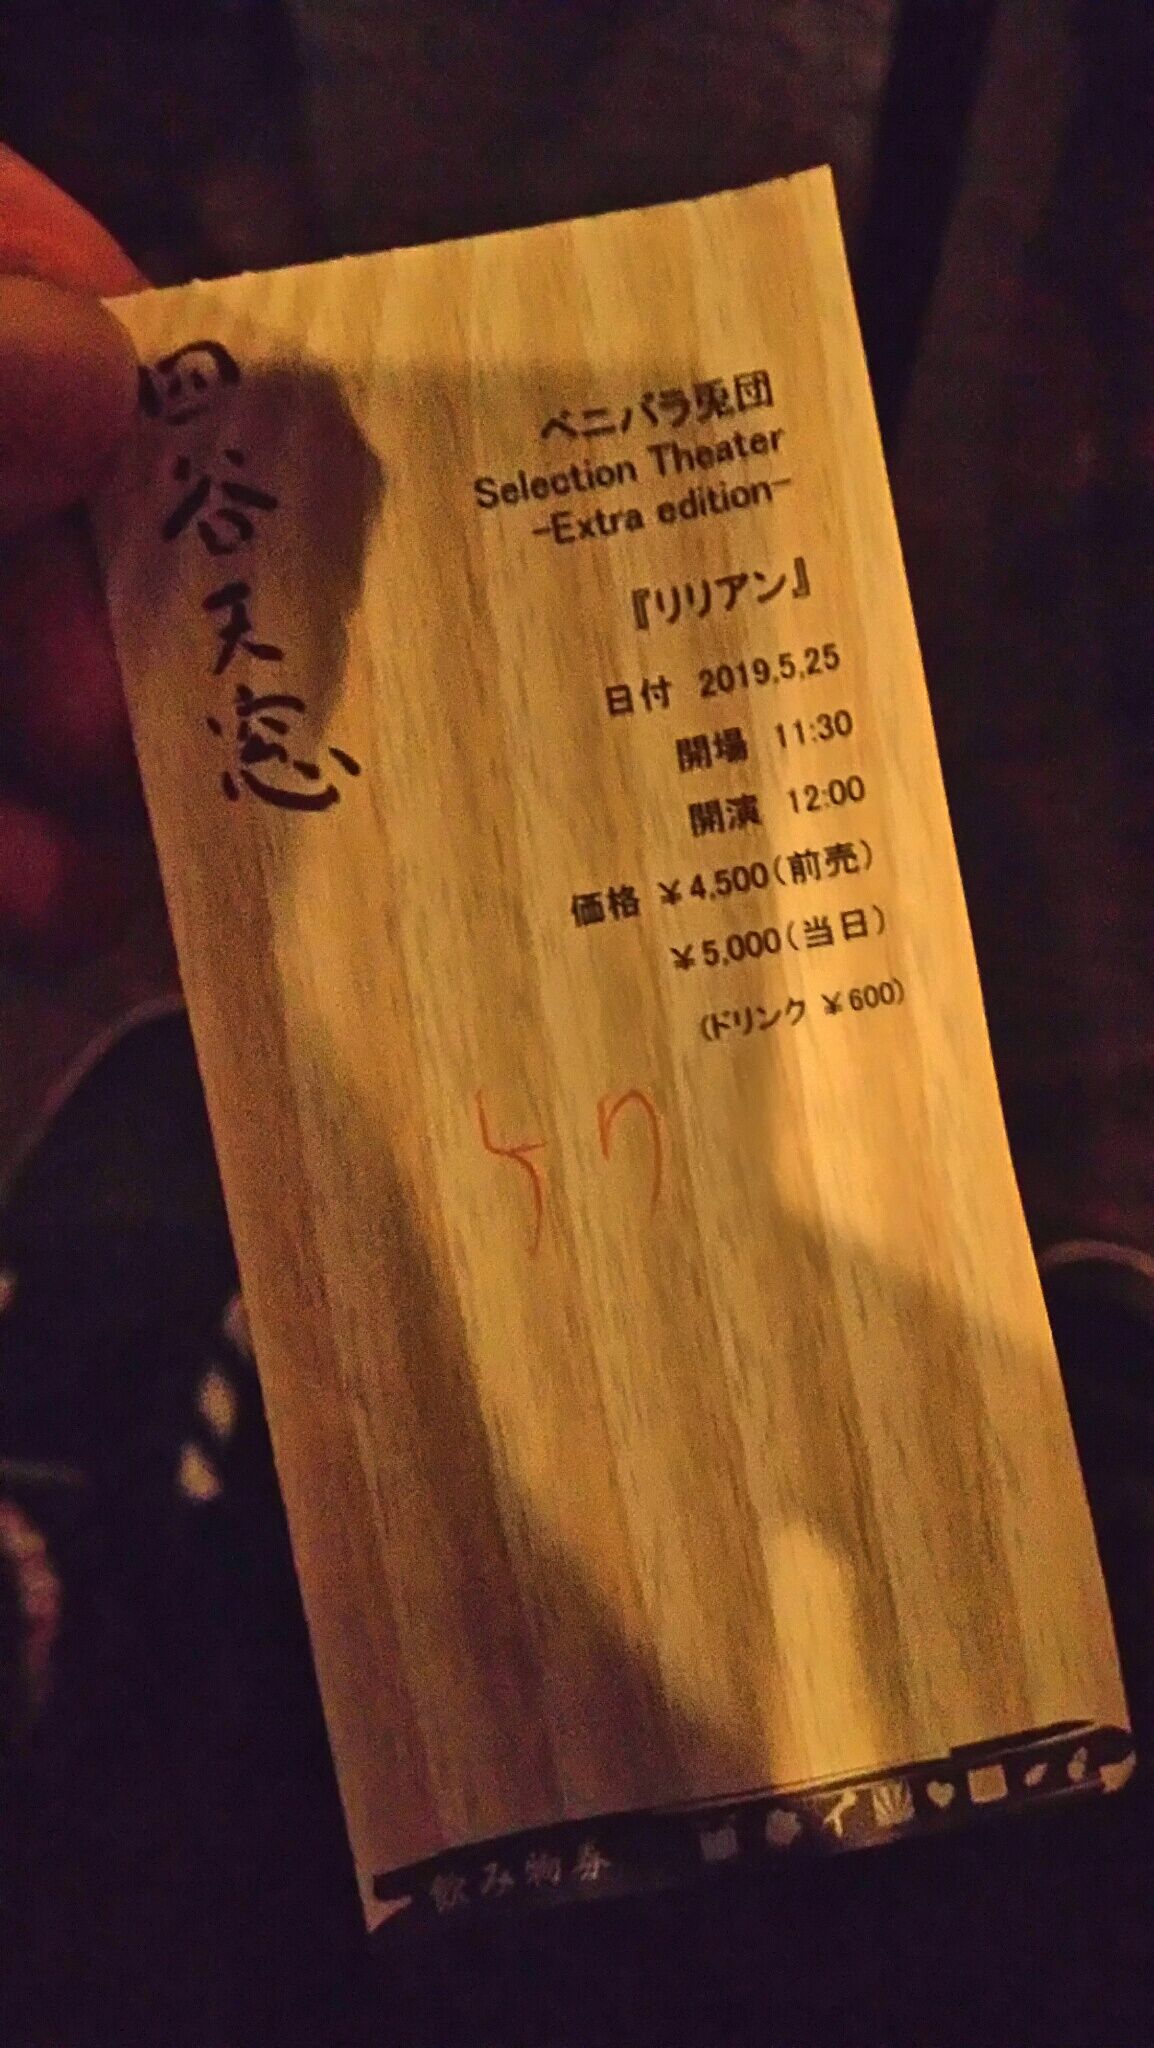 四谷天窓
ベニバラ兎団
Selection Theater
-Extra edition-
『リリアン』
日付 2019.5.25
開場 11:30
開演 12:00
価格 ¥4,500(前売)
¥5,000(当日)
(ドリンク ¥600)
57
飲み物券